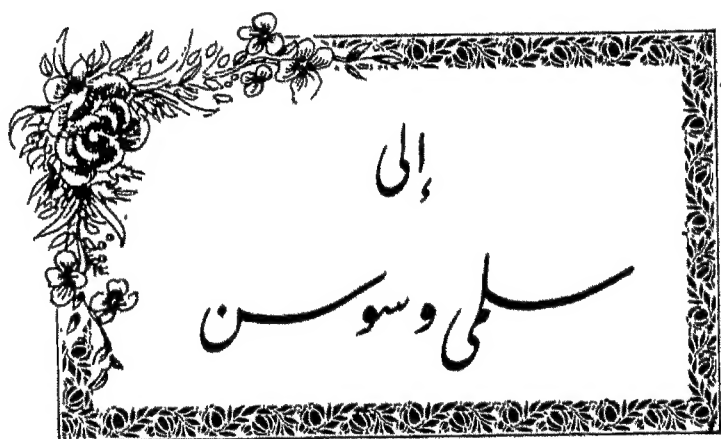 إلى
سلمى وسوسن